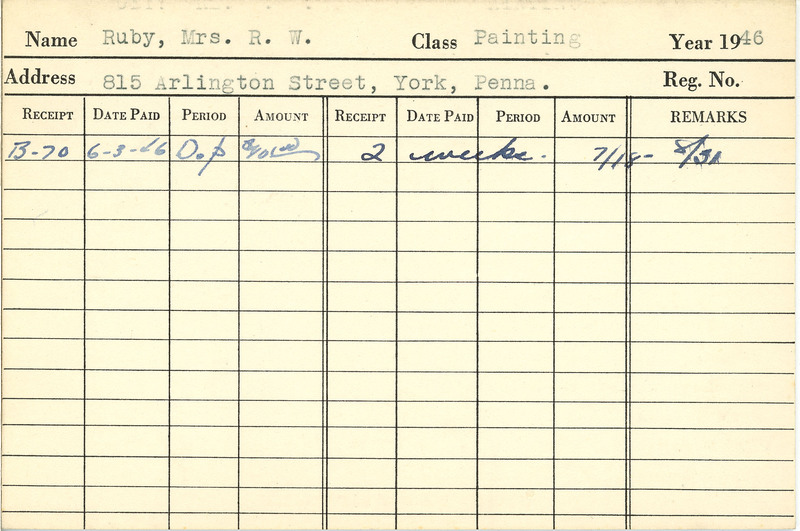 Name Ruby, Mrs. R. W. Class Painting Year 1946
Address 815 Arlington Street, York, Penna. Reg. No.
RECEIPT DATE PAID PERIOD AMOUNT RECEIPT DATE PAID PERIOD AMOUNT REMARKS
B-70 6-3-46 Dep 2 weeks. 7/18- 8/31